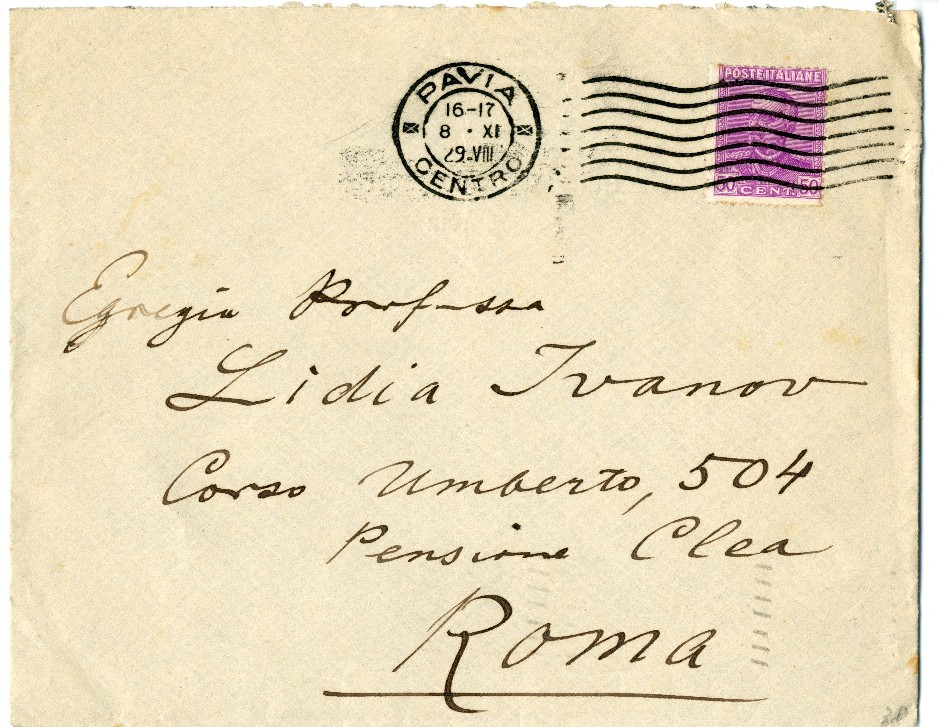 PAVIA
16-17
8 · XI
29-VIII
CENTRO
POSTE ITALIANE
50 CENT. 50
Egregia Profssa
Lidia Ivanov
Corso Umberto, 504
Pensione Clea
Roma